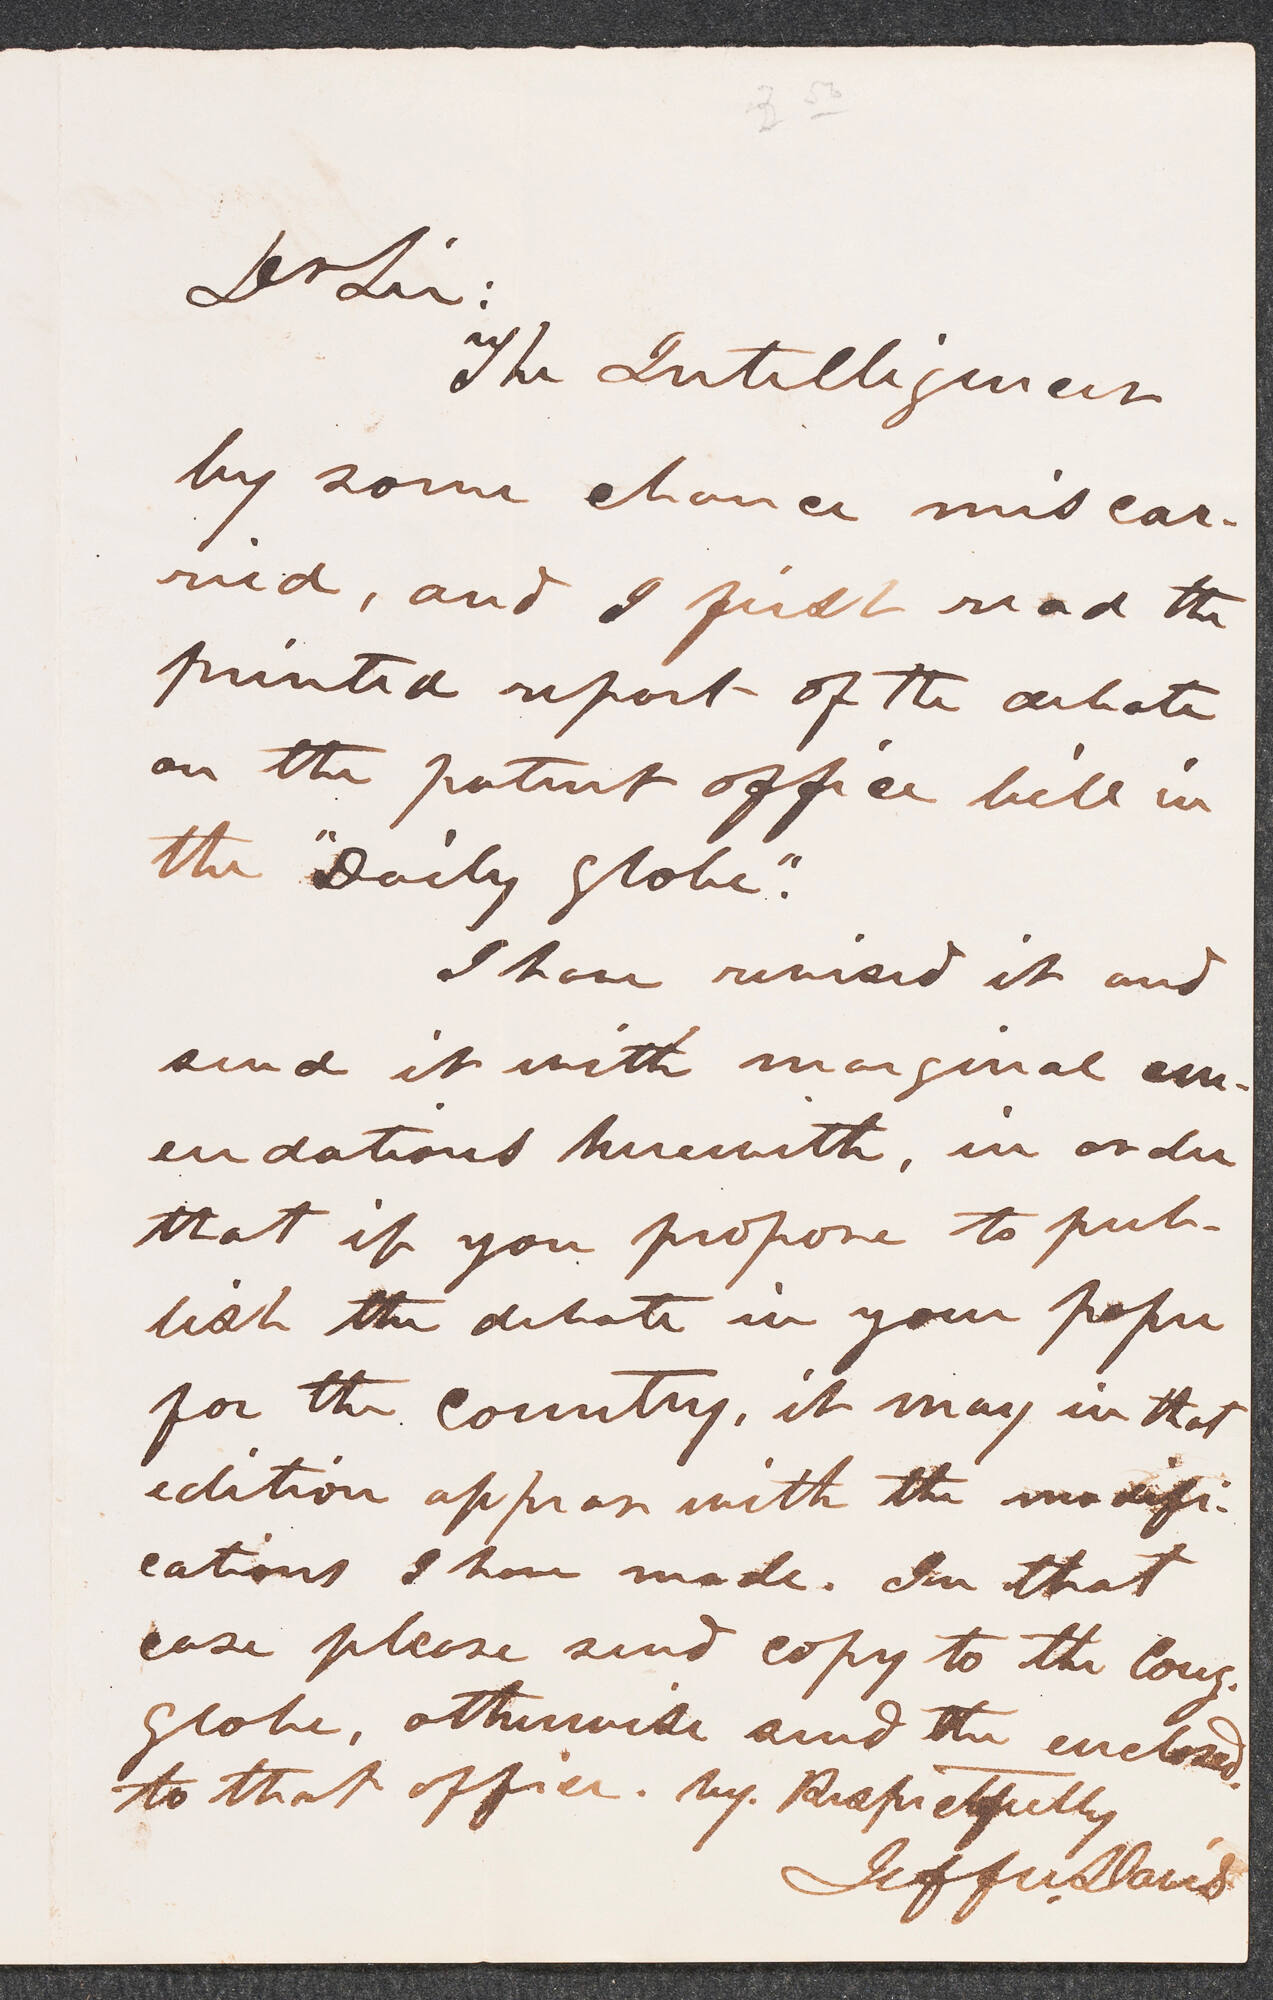 3 50
Dr Sir:
The Intelligencer
by some chance miscar-
ried, and I first read the
printed report of the debate
on the patent office bill in
the "Daily Globe".
I have revised it and
send it with marginal em-
endations herewith, in order
that if you propose to pub-
lish the debate in your paper
for the Country, it may in that
edition appear with the modifi-
cations I have made. In that
case please send copy to the Cong.
Globe, otherwise send the enclosed
to that office. Vy. Respectfully
Jeffn. Davis